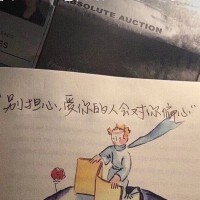 ABSOLUTE AUCTION
"别担心,爱你的人会对你偏心"